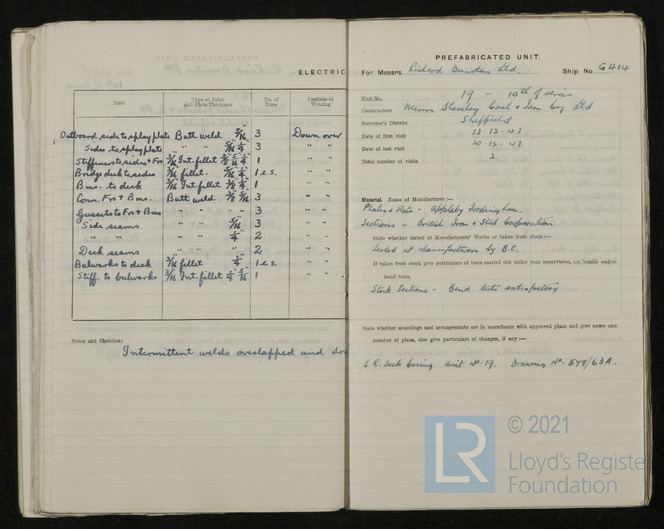 ELECTRIC
Item Type of Joint and Plate Thickness No. of Runs Position of Welding
Outboard side to splay plate Butt weld 5/16 3 Down over
Sides to splay plate " " 5/16 1/4 3 " "
Stiffeners to sides + Frs 3/16 Int. fillet 1 " "
Bridge deck to sides 3/16 fillet. 5/16 1/4 1 e.s. " "
Bms. to deck 3/16 Int. fillet 1 " "
Conn. Frs + Bms. Butt weld 3 " "
Gussets to Frs + Bms " " " 3 " "
Side seams " " 5/16 3 " "
" " " " 1/4 2 " "
Deck seams " " " 2 " "
Bulwarks to deck 3/16 fillet 1/4 1 e.s. " "
Stiff. to bulwarks 3/16 Int. fillet 1/4 5/16 1 " "
Notes and Sketches:
Intermittent welds overlapped and
PREFABRICATED UNIT.
For Messrs. Richard Dunston Ltd. Ship No. G414
Unit No. 19 - 10th of series
Constructors Messrs Staveley Coal & Iron Coy Ltd
Surveyor's District Sheffield
Date of first visit 13-12-43
Date of last visit 20-12-43
Total number of visits 2
Material. Name of Manufacturer :—
Plates & Flats - Appleby Frodingham.
Sections - British Iron & Steel Corporation
State whether tested at Manufacturers' Works or taken from stock :—
Tested at Manufacturers by B.C.
If taken from stock give particulars of tests carried out under your supervision, i.e. tensile and/or
bend tests.
Stock Sections - Bend tests satisfactory
State whether scantlings and arrangements are in accordance with approved plans and give name and
number of plans, also give particulars of changes, if any :—
Deck Casing Unit No. 19. Drawing No. 549/63A.
© 2021
LR Lloyd's Register
Foundation